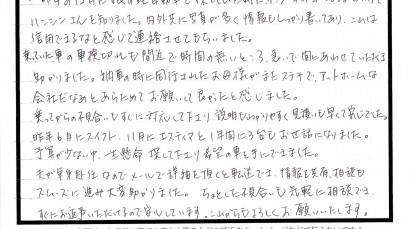 ハンシンさんを知りました。内外共に写真が多く情報もしっかり書いてあり、これは
信用できるなと感じて連絡させてもらいました。
乗っていた車の車検切れも間近で時間の無いところ、急いで間にあわせていただき
助かりました。納車の時に同行されたお母様がまたステキで、アットホームな
会社だなぁとあらためてお願いして良かったと感じました。
乗ってからの不具合もすぐに対応して下さり説明もわかりやすく見積も早くて安心でした。
昨年も白にスイフト、11月にエスティマと1年間に3台もお世話になりました。
予算が少ない中、一生懸命探して下さり希望の車を手にできました。
夫が単身赴任なのでメールで詳細を頂くと転送でき、情報も共有、相談も
スムーズに進み大変助かりました。ちょっとした不具合も気軽に相談でき、
すぐにお返事いただけるので安心しています。これからもよろしくお願いいたします。